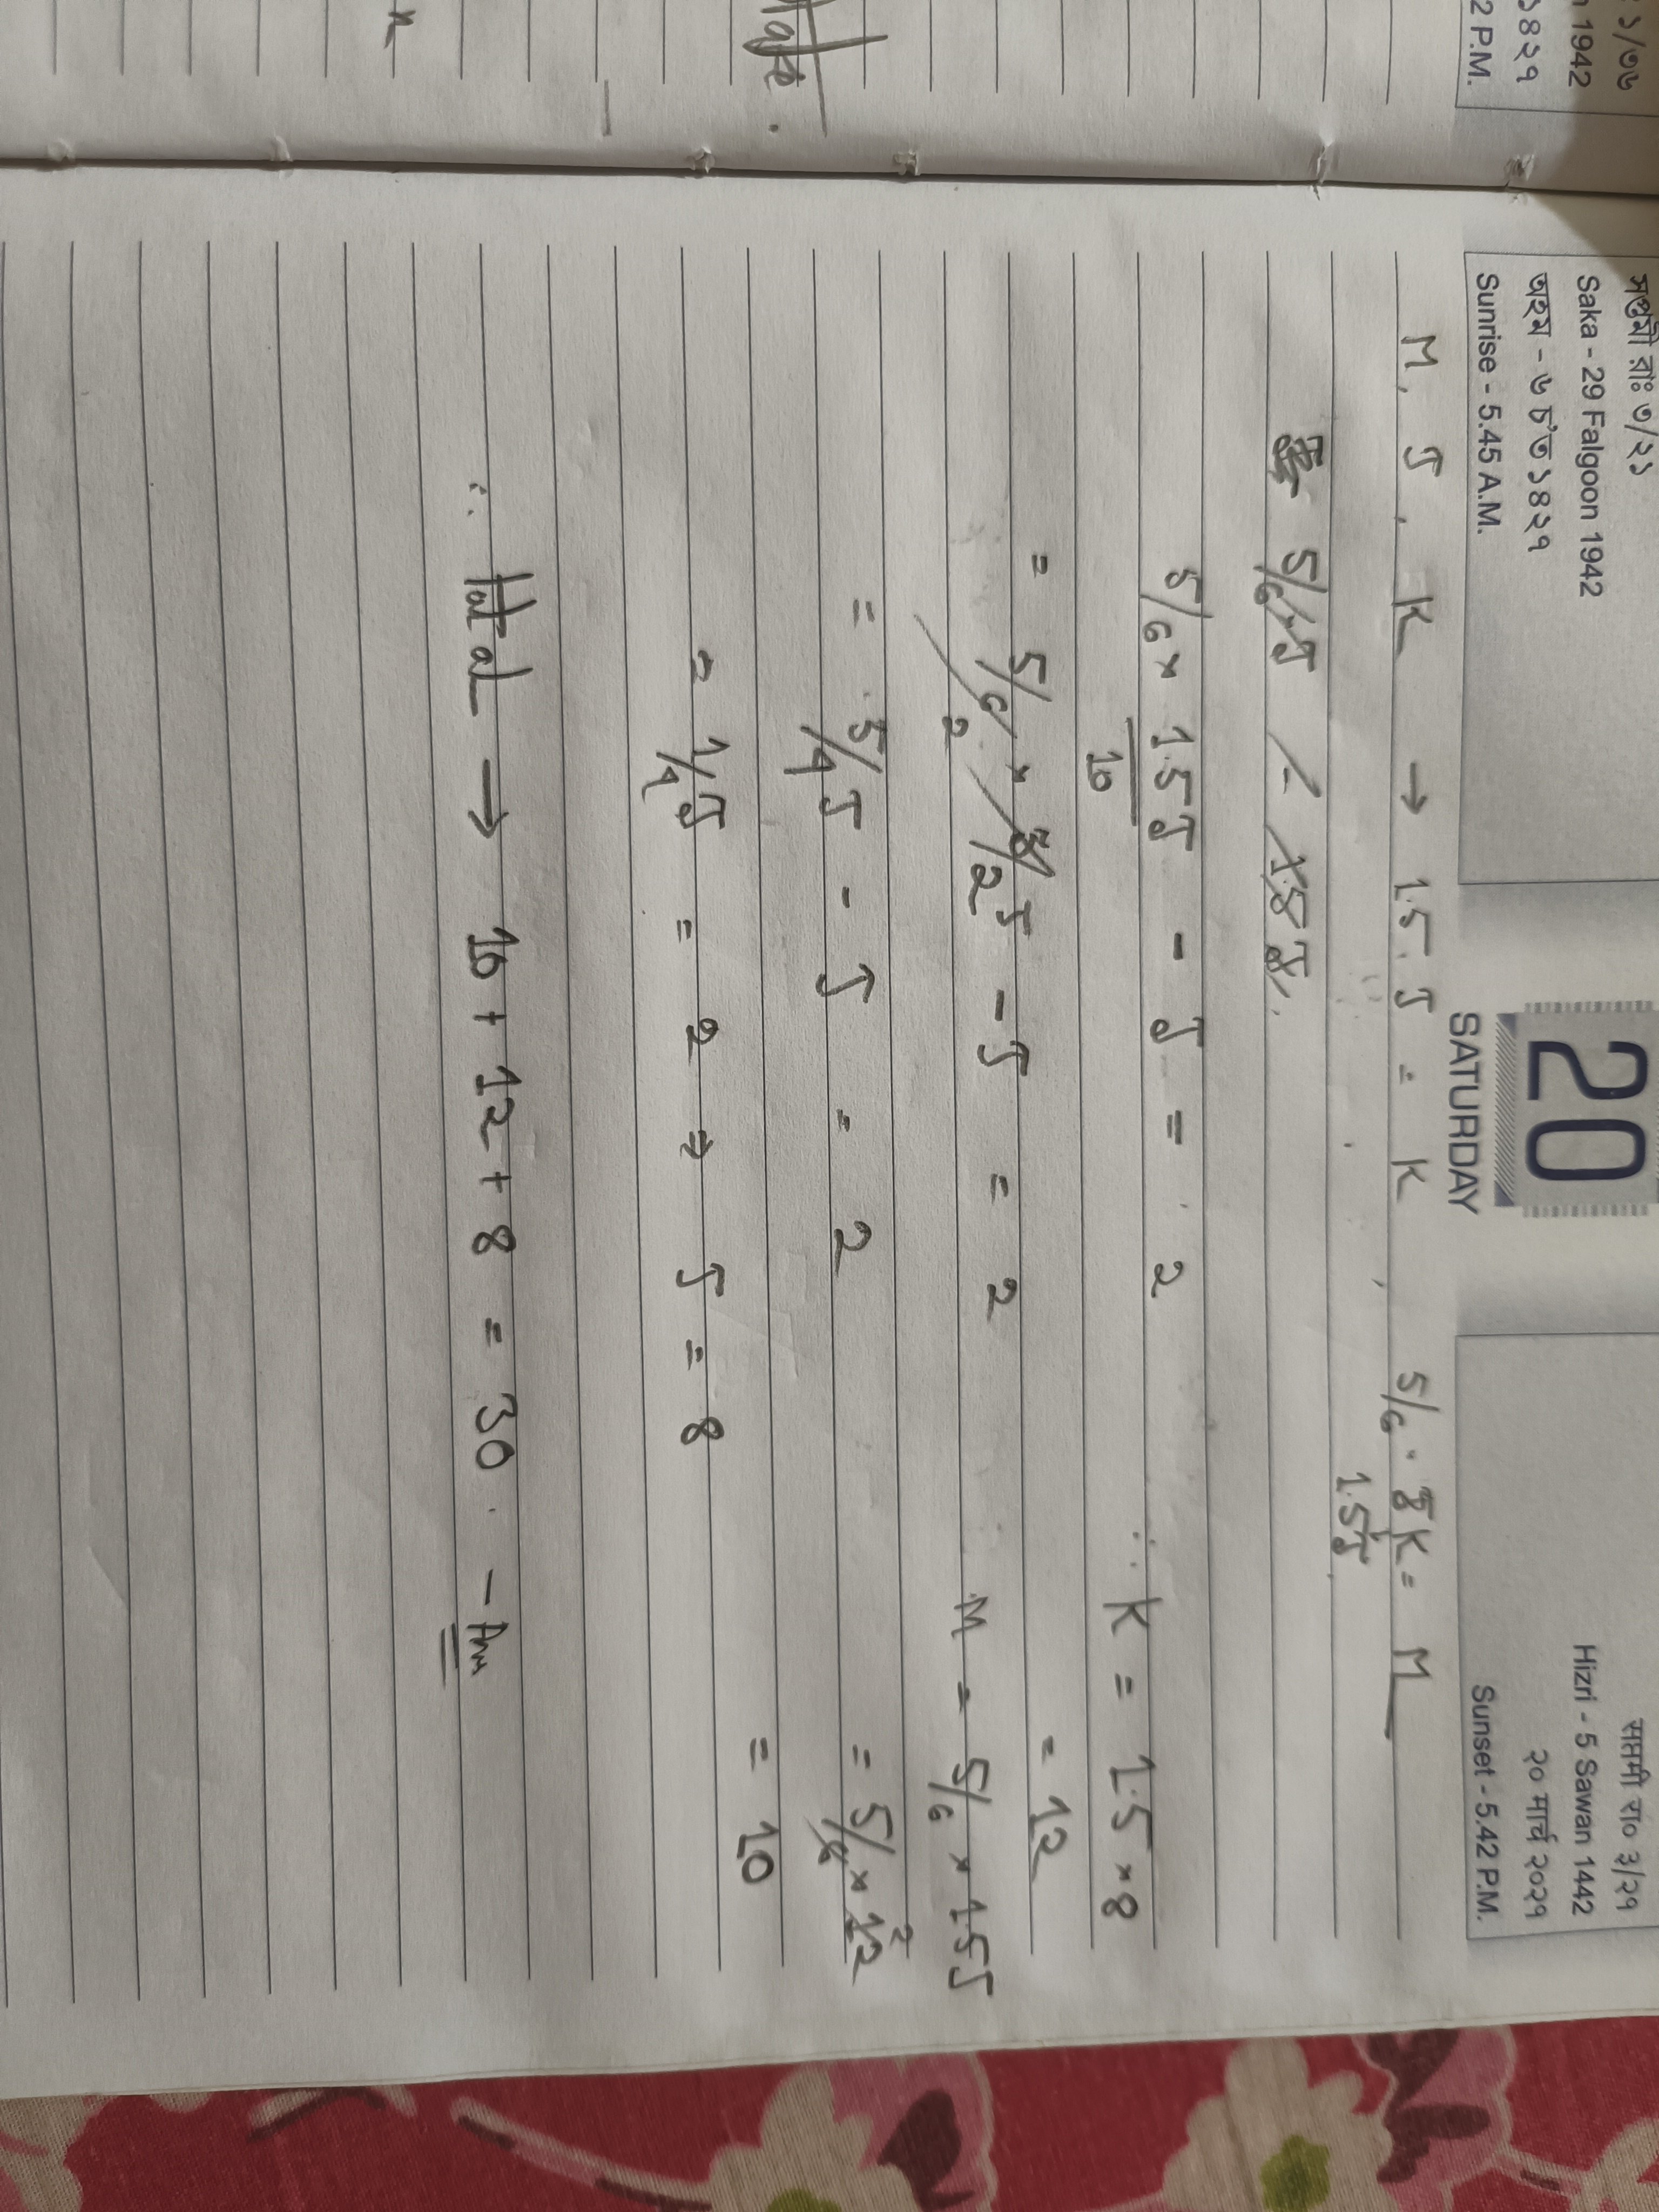 ১/৩৬
1942
১৪২৭
2 P.M.
সপ্তমী ৰাঃ ৩/২১
Saka - 29 Falgoon 1942
অহম - ৬ চ'ত ১৪২৭
Sunrise - 5.45 A.M.
20
SATURDAY
सप्तमी रा० ३/२१
Hizri - 5 Sawan 1442
२० मार्च २०२१
Sunset - 5.42 P.M.
M, J, K → 1.5. J = K 5/6 . K = M
1.5J
5/6 J - 1.5 J
5/6 × 15J/10 - J = 2
∴ K = 1.5 × 8
= 12
= 5/6 × 3/2 J - J = 2
2
M = 5/6 × 1.5J
= 5/4 J - J = 2
= 5/6 × 12 2
= 10
= 1/4 J = 2 ⇒ J = 8
∴ total → 10 + 12 + 8 = 30. - Ans